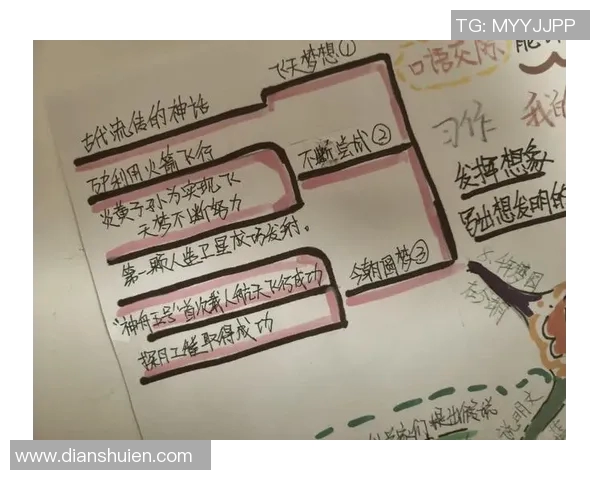 TG: MYYJJPP
飞天梦想①
古代流传的神话
不断尝试②
万户利用火箭飞行
炎黄子孙为实现飞
天梦不断努力
今朝圆梦③
第一颗人造卫星成功发射。
"神舟五号"首次载人航天飞行成功
探月工程取得成功
口语交际
习作
我的
发挥想象
写出想发明的
说明文
www.dianshuien.com